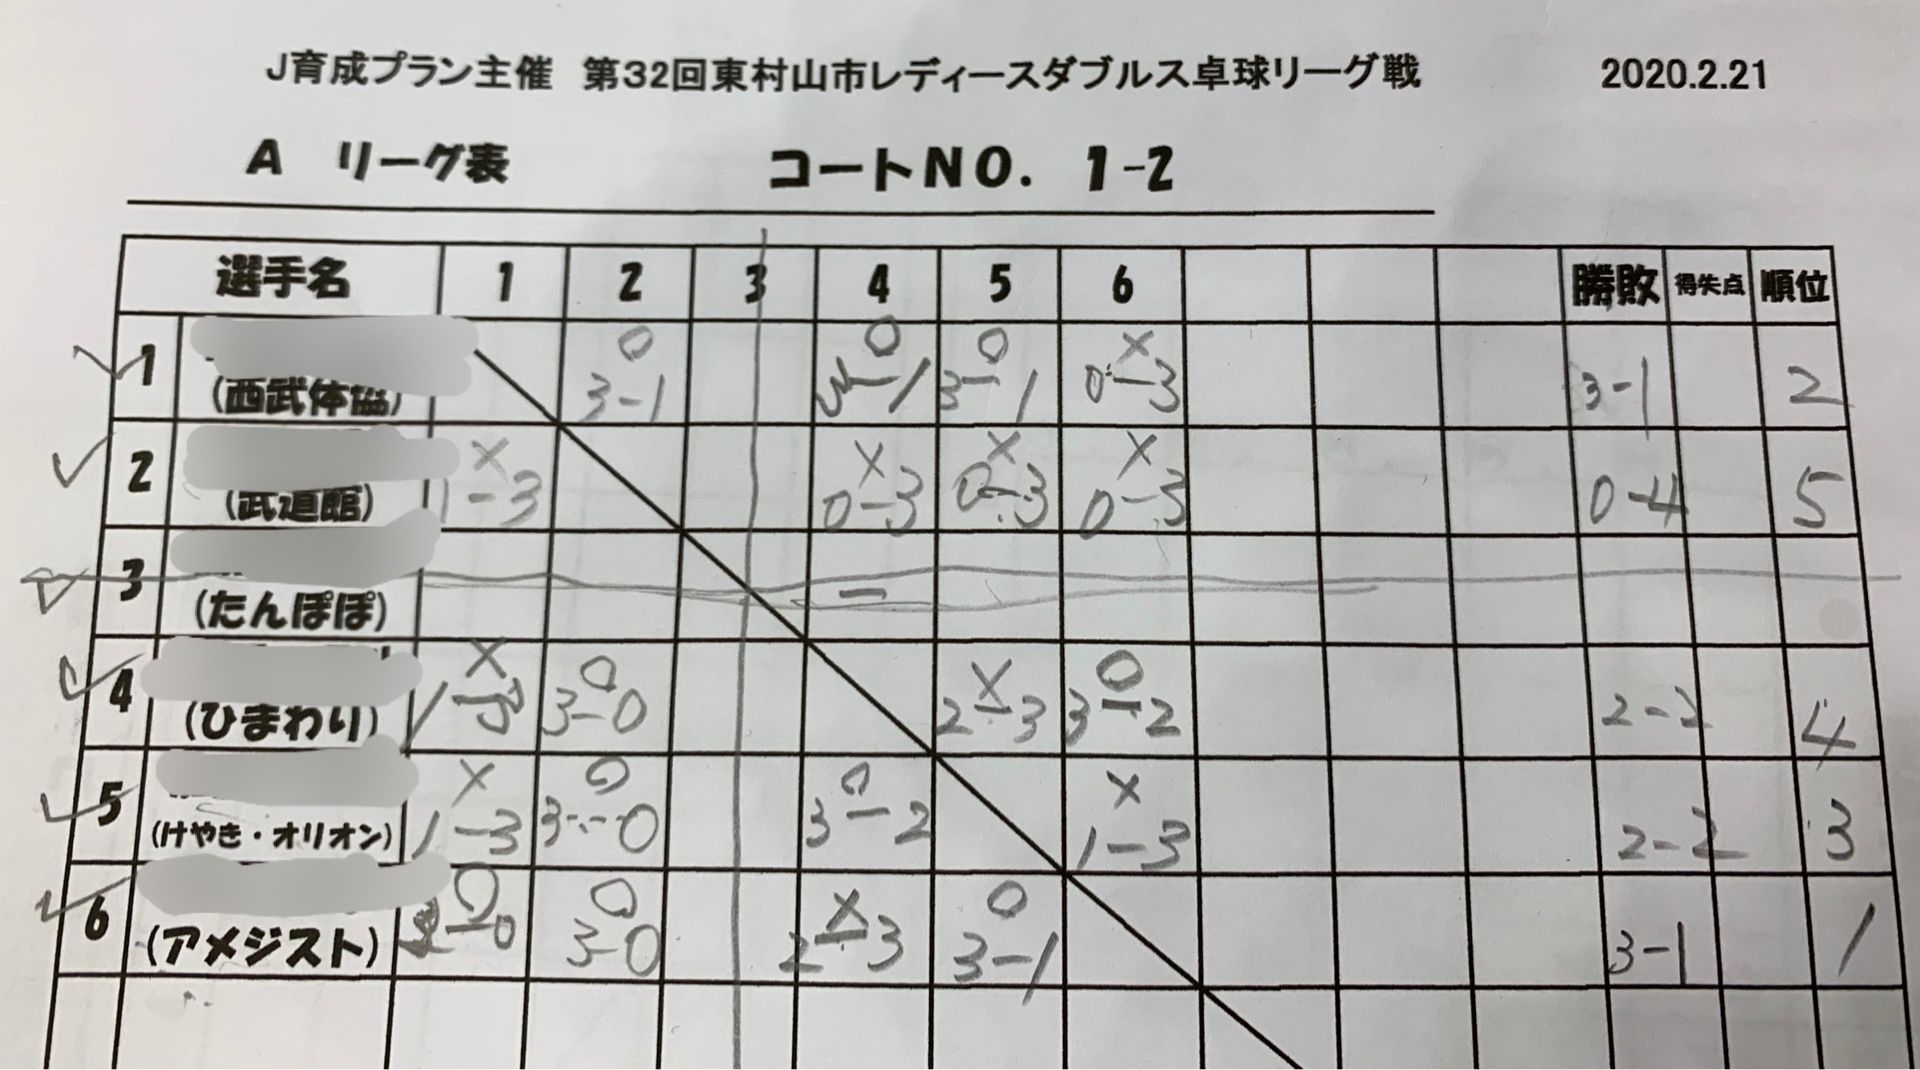 J育成プラン主催 第32回東村山市レディースダブルス卓球リーグ戦 2020.2.21
A リーグ表 コートNO. 1-2
選手名 1 2 3 4 5 6 勝敗 得失点 順位
1 (西武体協) 0 3-1 0 3-1 0 3-1 × 0-3 3-1 2
2 (武道館) × 1-3 × 0-3 × 0-3 × 0-3 0-4 5
3 (たんぽぽ) -
4 (ひまわり) × 1-3 0 3-0 × 2-3 0 3-2 2-2 4
5 (けやき・オリオン) × 1-3 0 3-0 0 3-2 × 1-3 2-2 3
6 (アメジスト) 0 3-0 0 3-0 × 2-3 0 3-1 3-1 1